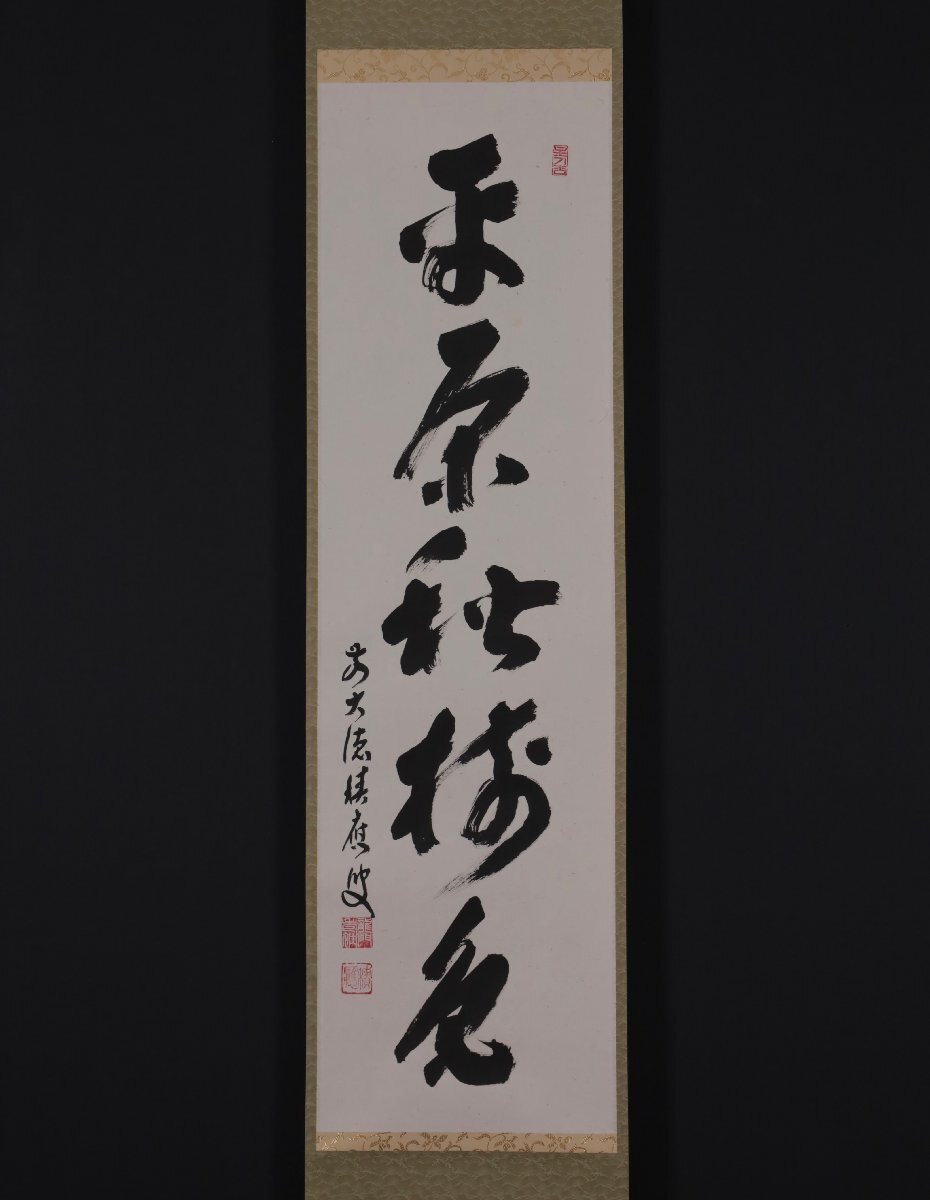 平原秋樹色
前大徳積應叟